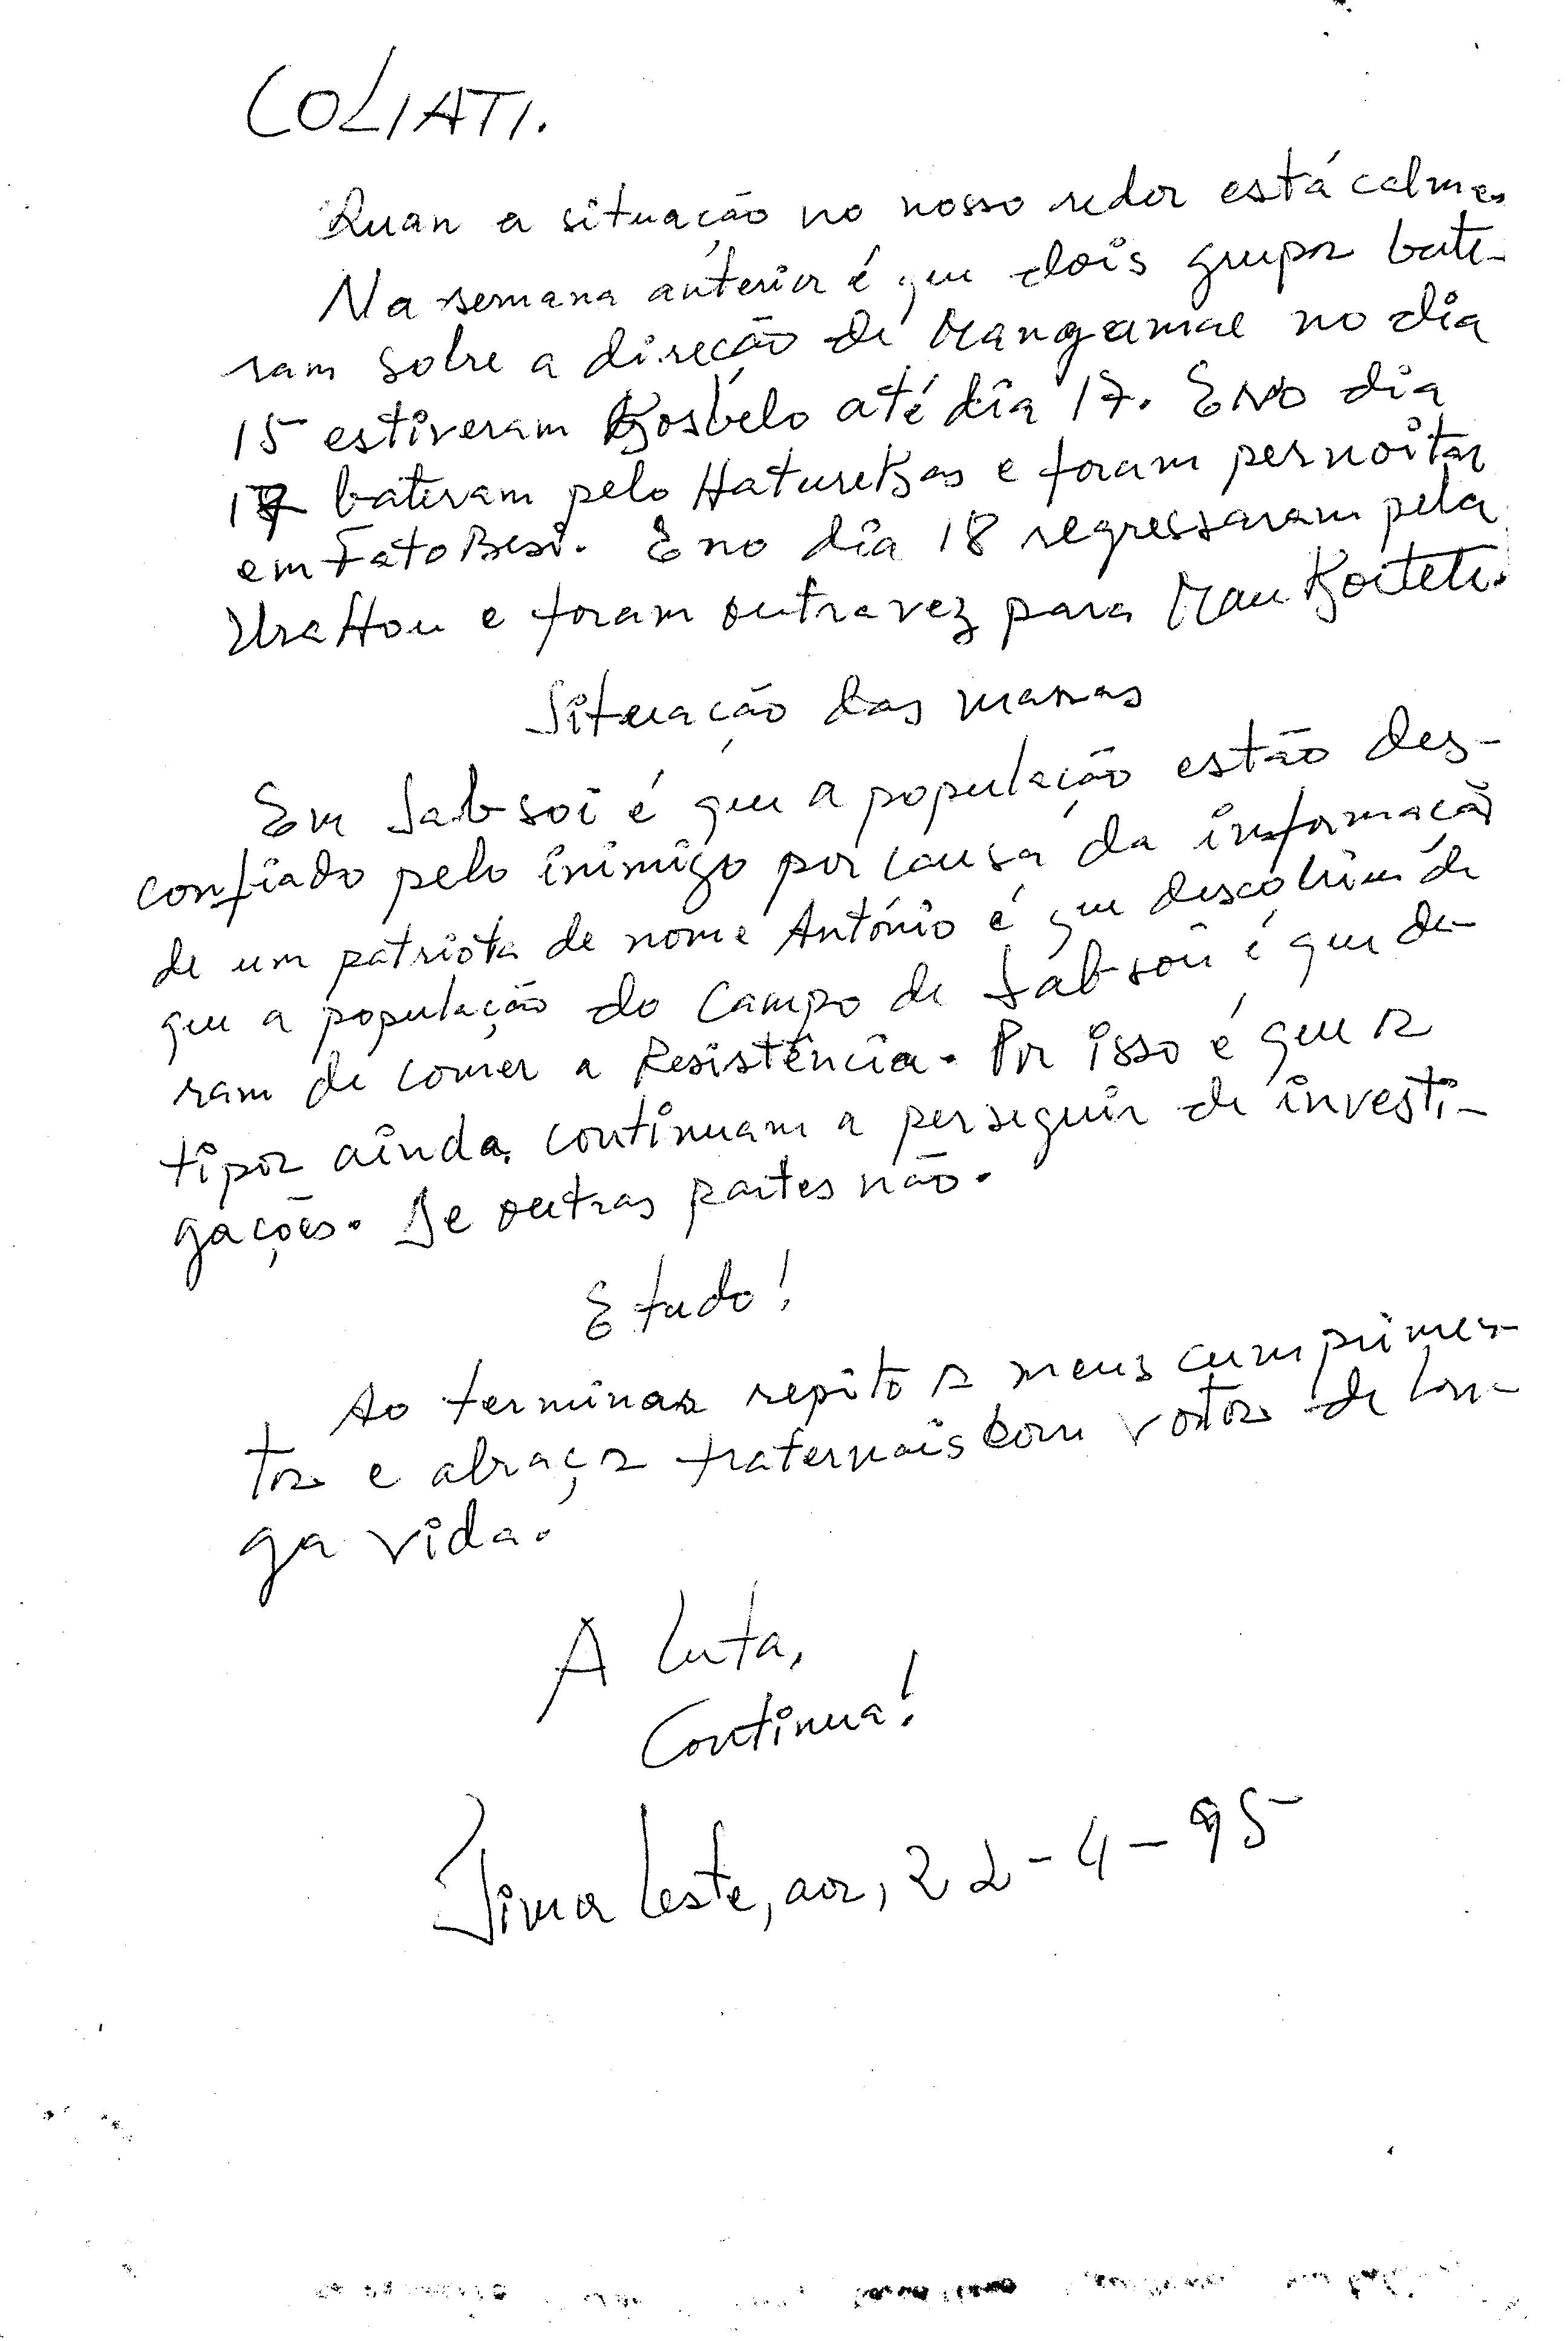 COLIATI.
Quan a situação no nosso redor está calma.
Na semana anterior é que dois grupos bate-
ram sobre a direção de Mangamae no dia
15 estiveram Bosbelo até dia 17. E no dia
17 bateram pelo HatureBas e foram pernoitar
em FatoBesi. E no dia 18 regressaram pela
UraHou e foram outra vez para Mau Boitete.
Situação das massas
Em Sabsoi é que a população estão des-
confiado pelo inimigo por causa da informação
de um patriota de nome António é que descobrim de
que a população do Campo de Sabsoi é que de-
ram de comer a Resistência. Por isso é que os
tipos ainda continuam a perseguir de investi-
gações. De outras partes não.
E tudo!
Ao terminar repito os meus cumprimen-
tos e abraços fraternais com votos de lon-
ga vida.
A luta,
Continua!
Timor Leste, aos, 22-4-95